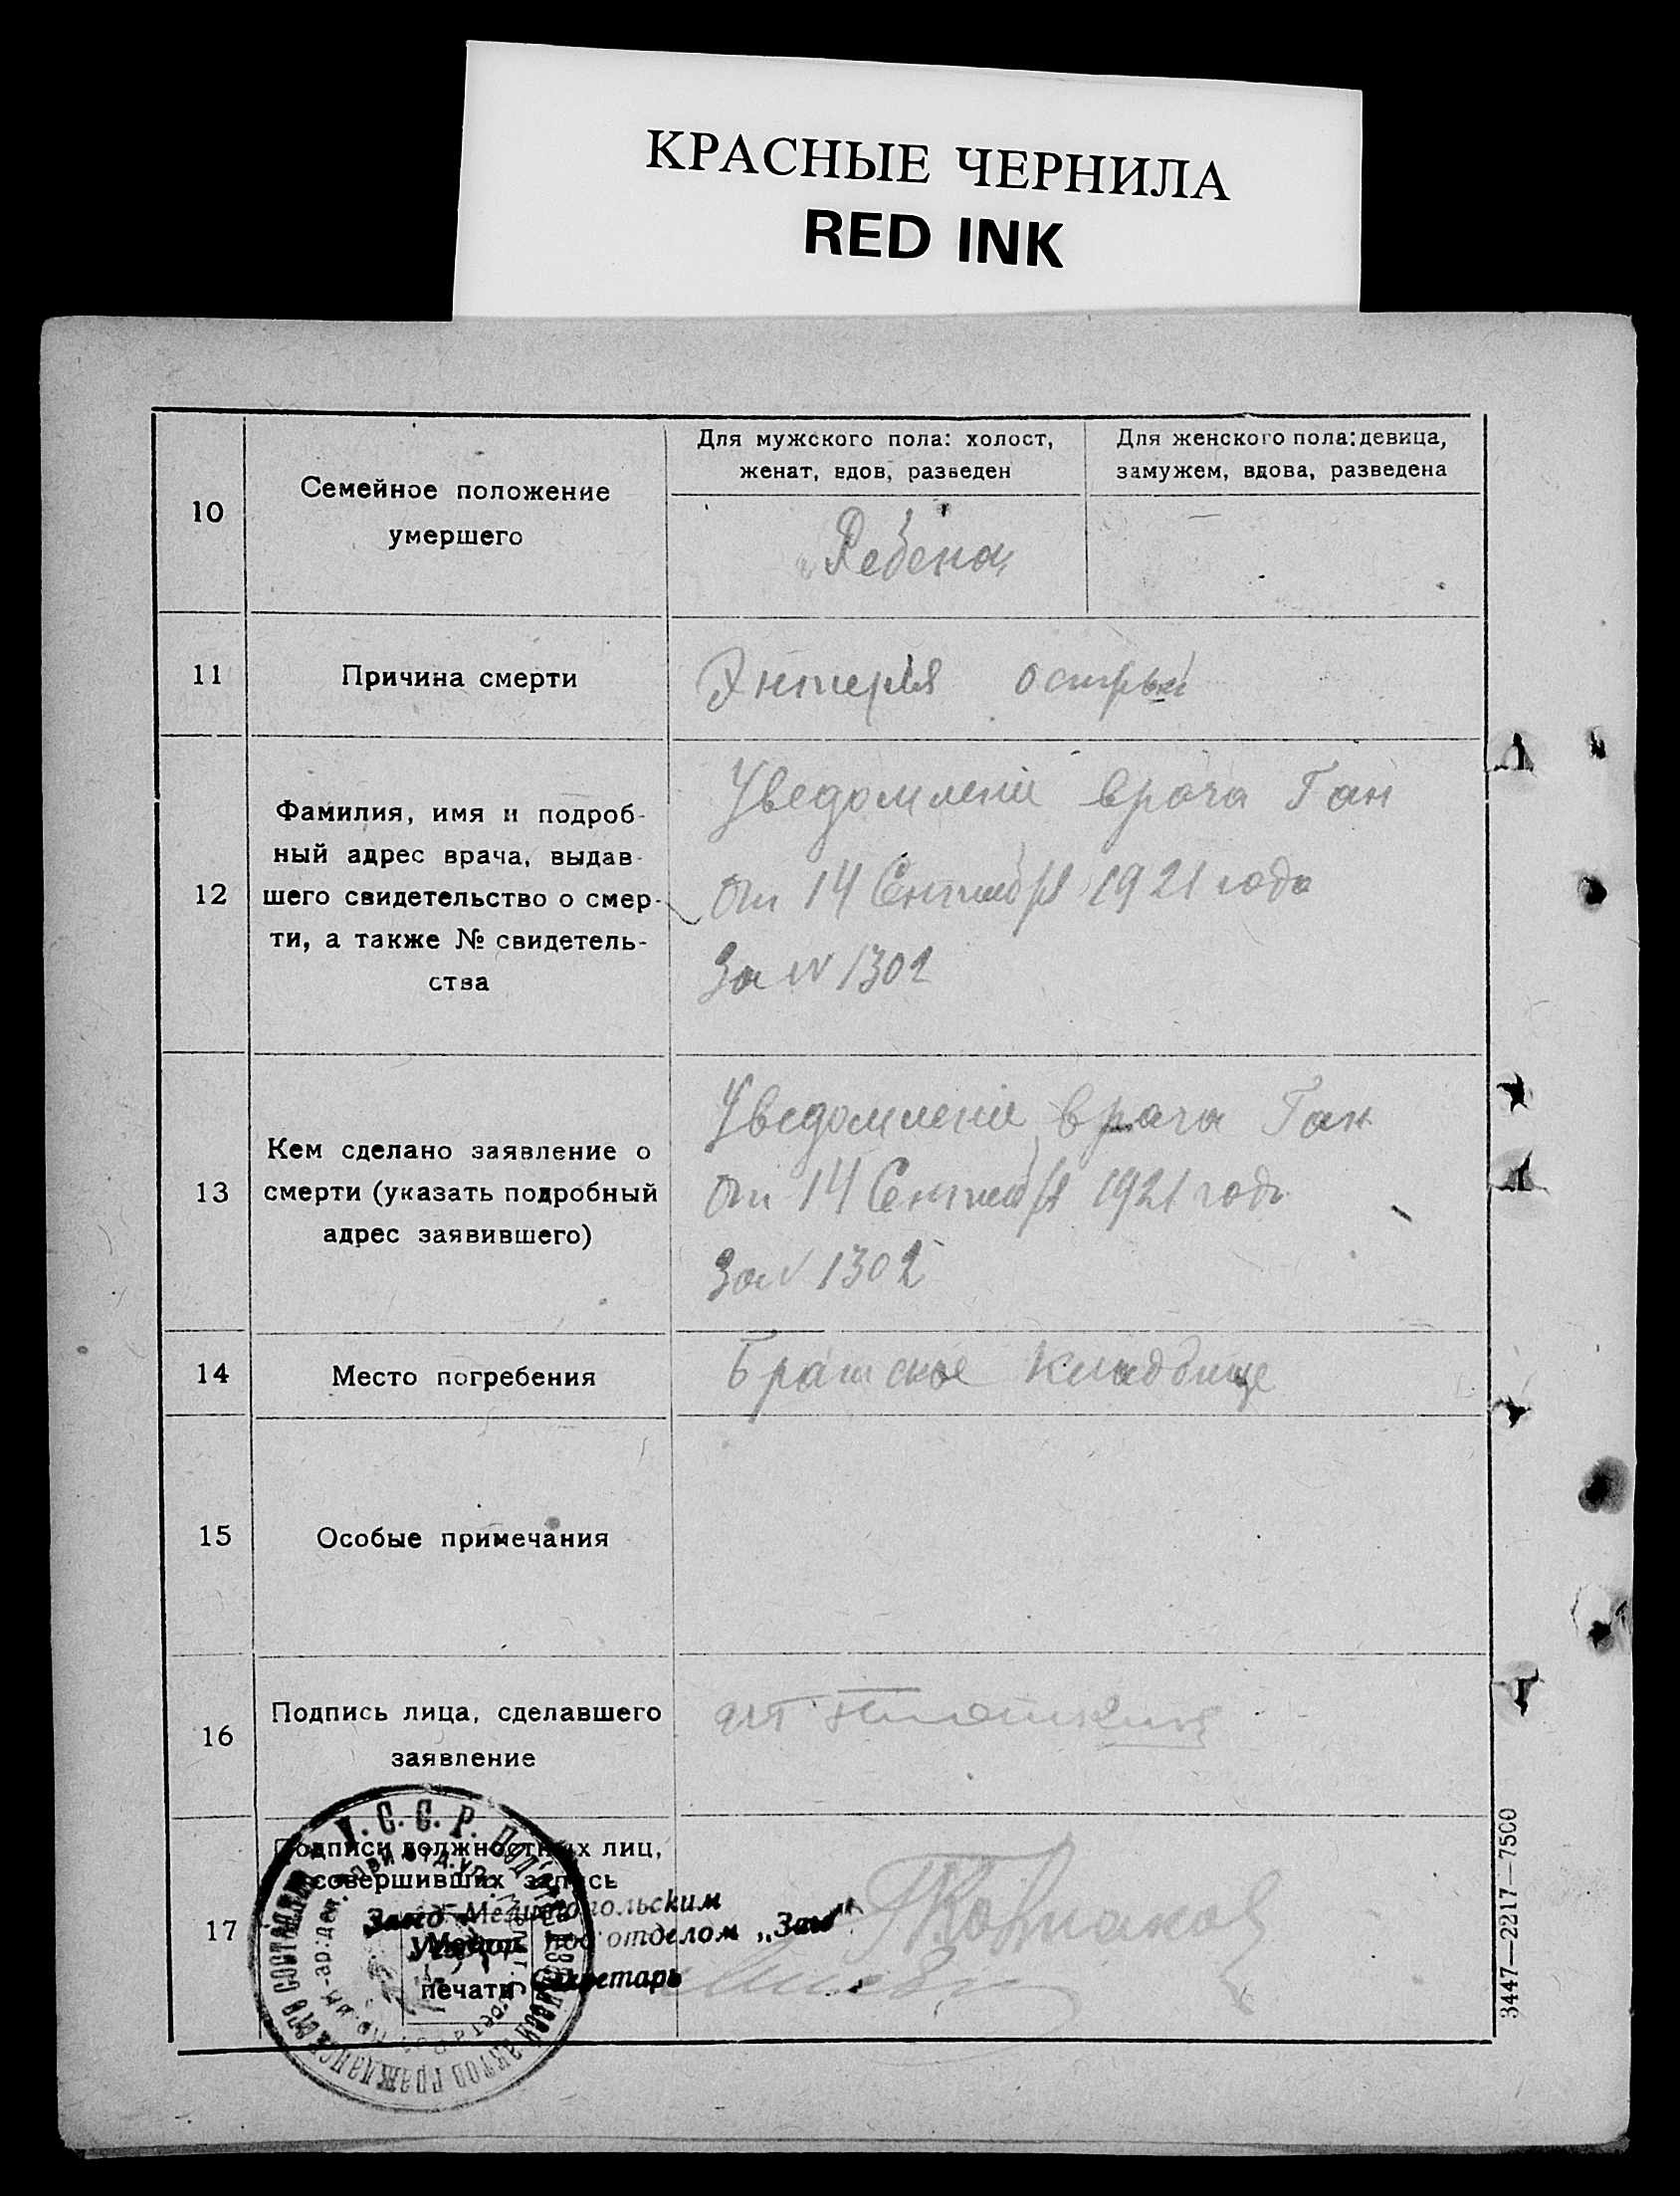 КРАСНЫЕ ЧЕРНИЛА
RED INK
10
Семейное положение
умершего
Для мужского пола: холост,
женат, вдов, разведен
Для женского пола: девица,
замужем, вдова, разведена
„Ребена„
11
Причина смерти
острый
12
Фамилия, имя и подроб-
ный адрес врача, выдав-
шего свидетельство о смер-
ти, а также № свидетель-
ства
Уведомлени врача Ган
От 14 Сентября 1921 года
За N 1302
13
Кем сделано заявление о
смерти (указать подробный
адрес заявившего)
Уведомлени врача Ган
От 14 Сентября 1921 года
За N 1302
14
Место погребения
Братское Кладбище
15
Особые примечания
16
Подпись лица, сделавшего
заявление
17
Подписи должностных лиц,
совершивших запись
Завед Мелитопольским
под отделом „Загс“
Место
печати
Секретарь
У. С. С. Р.
записи актов гражданского состояния
3447—2217—7500